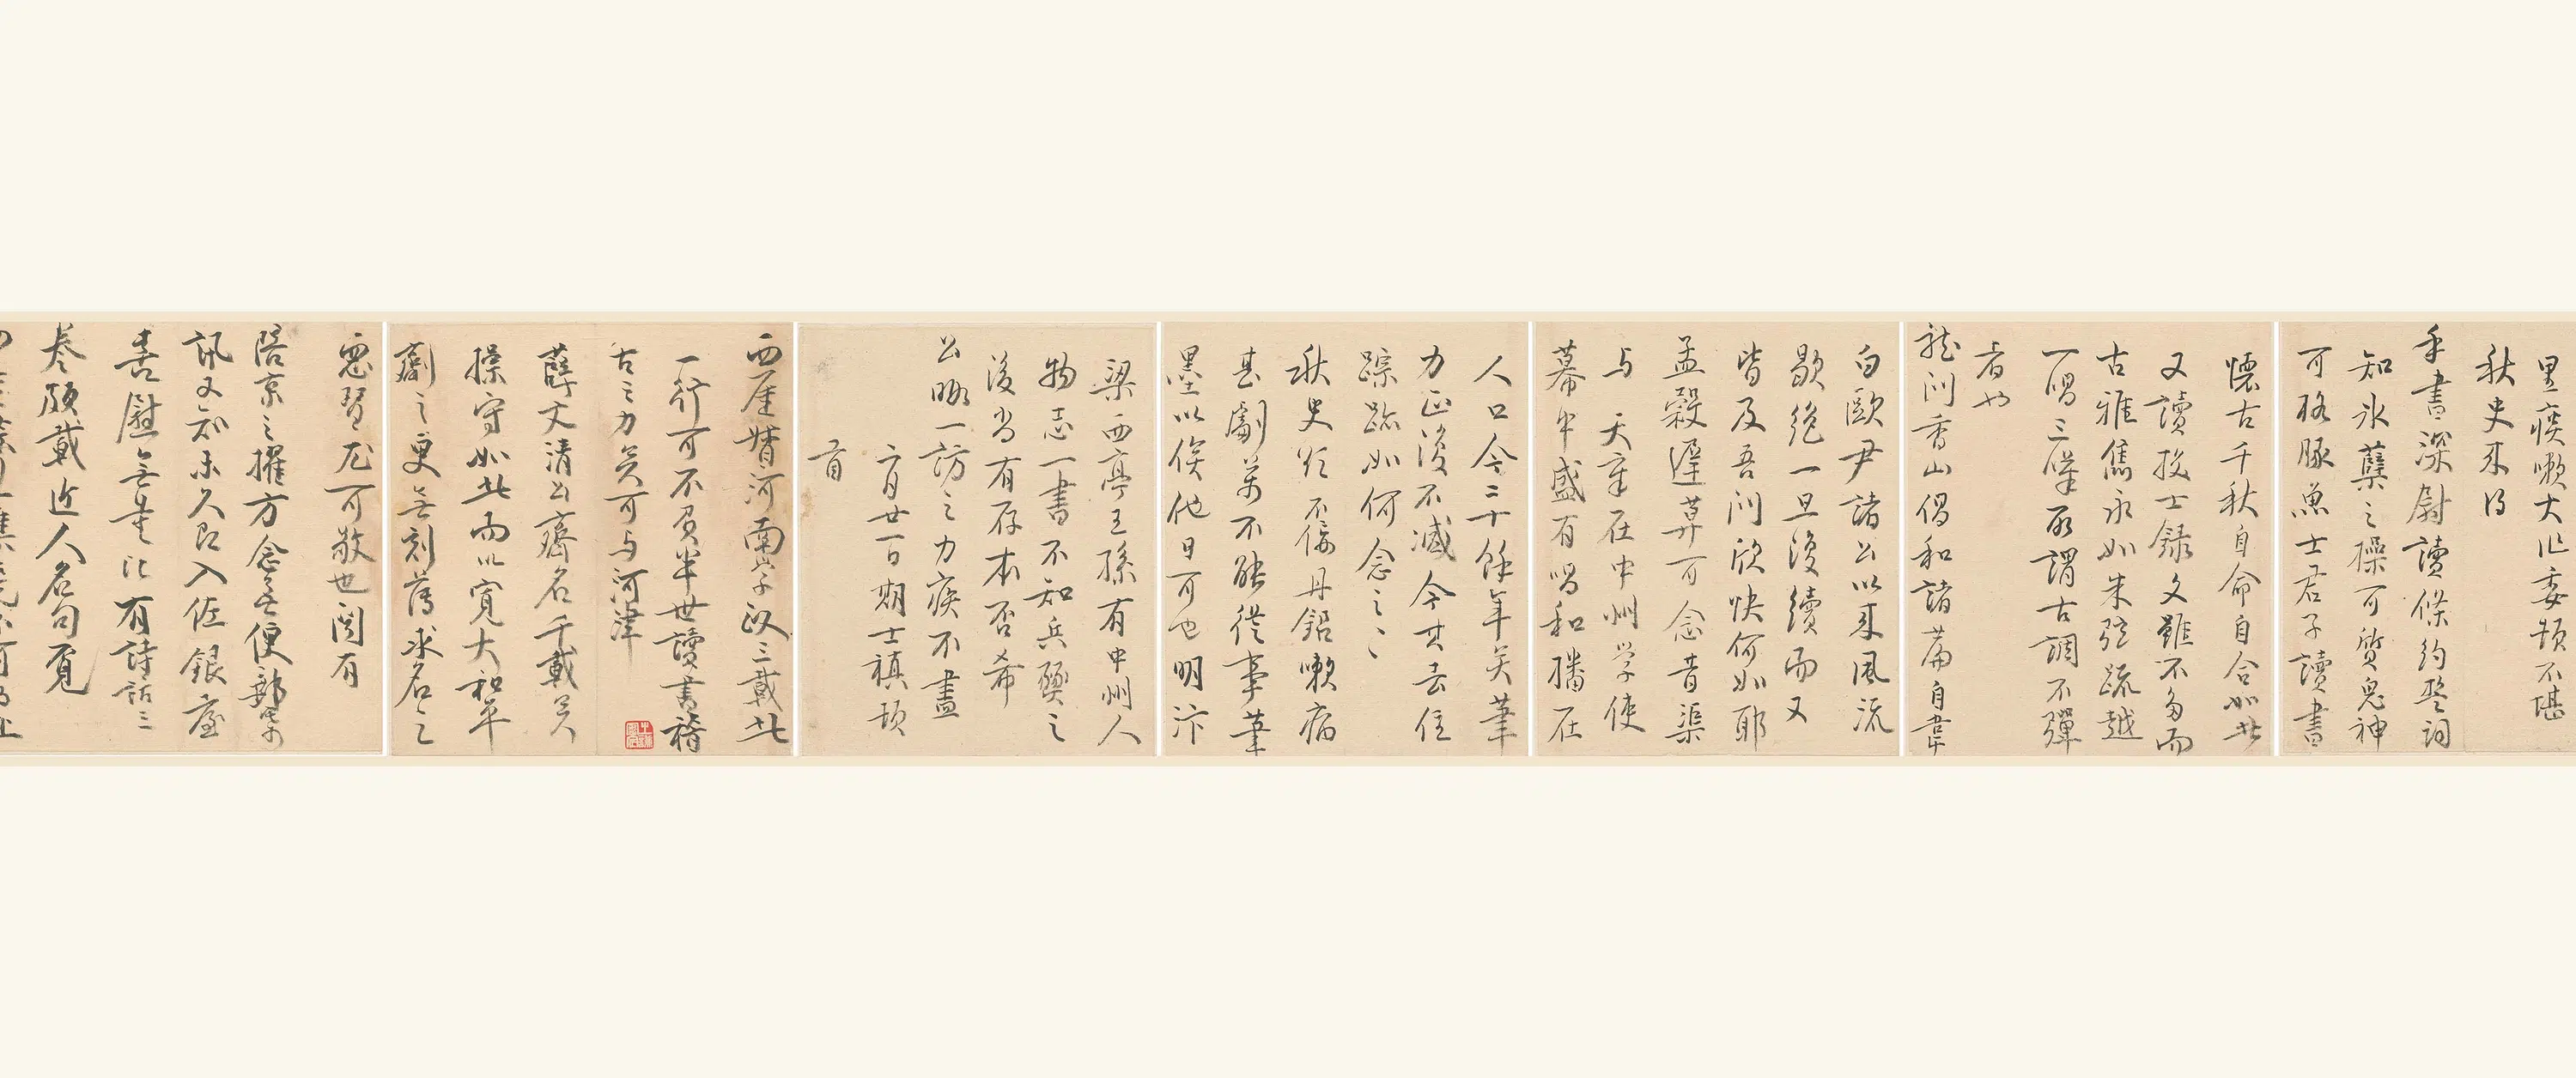 里痰嗽大作委頓不堪
秋史来得
手書深慰讀條約堅詞
知冰蘗之操可質鬼神
可格豚魚士君子讀書
懷古千秋自命自合如此
又讀投士録文雖不多而
古雅雋永如朱弦疏越
一唱三歎所謂古調不彈
者也
龍門香山倡和諸篇自韋
白歐尹諸公以来風流
歇絶一旦復續而又
皆及吾門欣快何如耶
孟穀遲莫可念昔渠
与天章在中州学使
幕中盛有唱和播在
人口今二十餘年矣筆
力正復不減今其去住
踪跡如何念之〻
秋史於不佞丹鉛嗽病
甚劇萬不能從事筆
墨以俟他日可也明汴
梁西亭王孫有中州人
物志一書不知兵燹之
後尚有存本否希
公暇一訪之力疾不盡
六月廿一日期士禛頓
首
西厓督河南学政三載此
一行可不負半世讀書稽
古之力矣可与河津
薛文清公齊名千載矣
操守如此而以寛大和平
劑之更無刻薄求名之
慝習尤可敬也閲有
陪京之擢方念無便郵寄
訊又知未久即入佐銀臺
喜慰無量比有詩話三
卷頗載近人名句覓